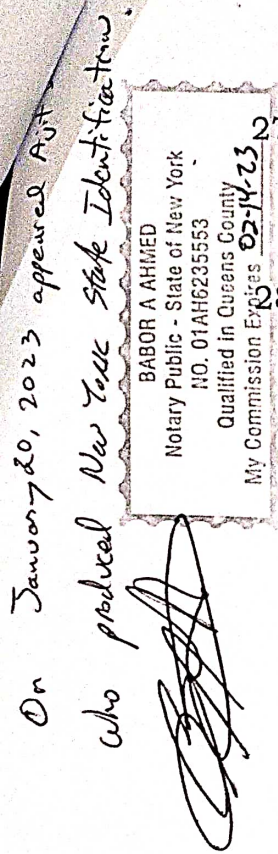 On January 20, 2023 appeared
who produced New York State Identification.
BABOR A AHMED
Notary Public - State of New York
NO. 01AH6235553
Qualified in Queens County
My Commission Expires 02-14-23